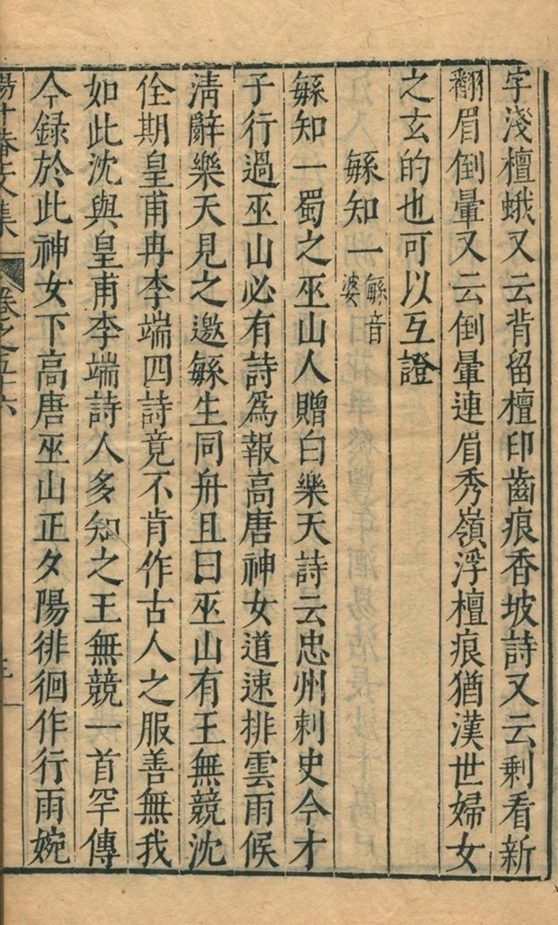 字淺檀蛾又云背留檀印齒痕香坡詩又云剩看新
翻眉倒暈又云倒暈連眉秀嶺浮檀痕猶漢世婦女
之玄的也可以互證
緐知一緐音婆
緐知一蜀之巫山人贈白樂天詩云忠州刺史今才
子行過巫山必有詩爲報高唐神女道速排雲雨候
淸辭樂天見之邀緐生同舟且曰巫山有王無競沈
佺期皇甫冉李端四詩竟不肯作古人之服善無我
如此沈與皇甫李端詩人多知之王無競一首罕傳
今録於此神女下高唐巫山正夕陽徘徊作行雨婉
卷之五十六